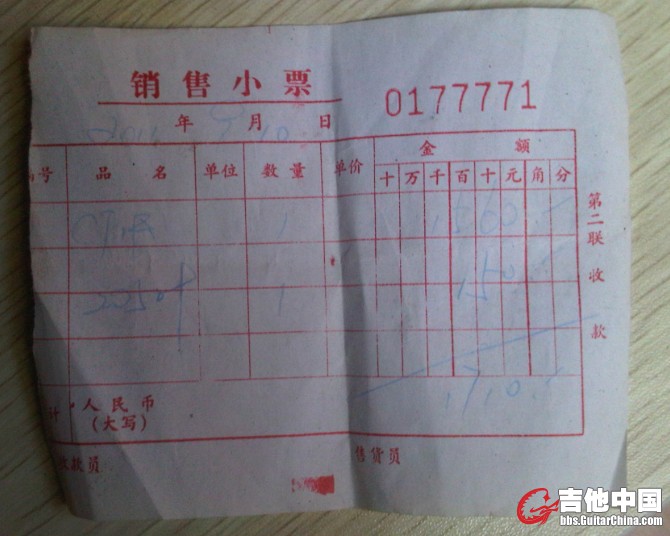 销售小票
0177771
年 月 10 日
号 品名 单位 数量 单价 金额
十 万 千 百 十 元 角 分
1 1560
1 150
1710
计 人民币
(大写)
收款员 售货员
第二联收款
吉他中国
bbs.GuitarChina.com